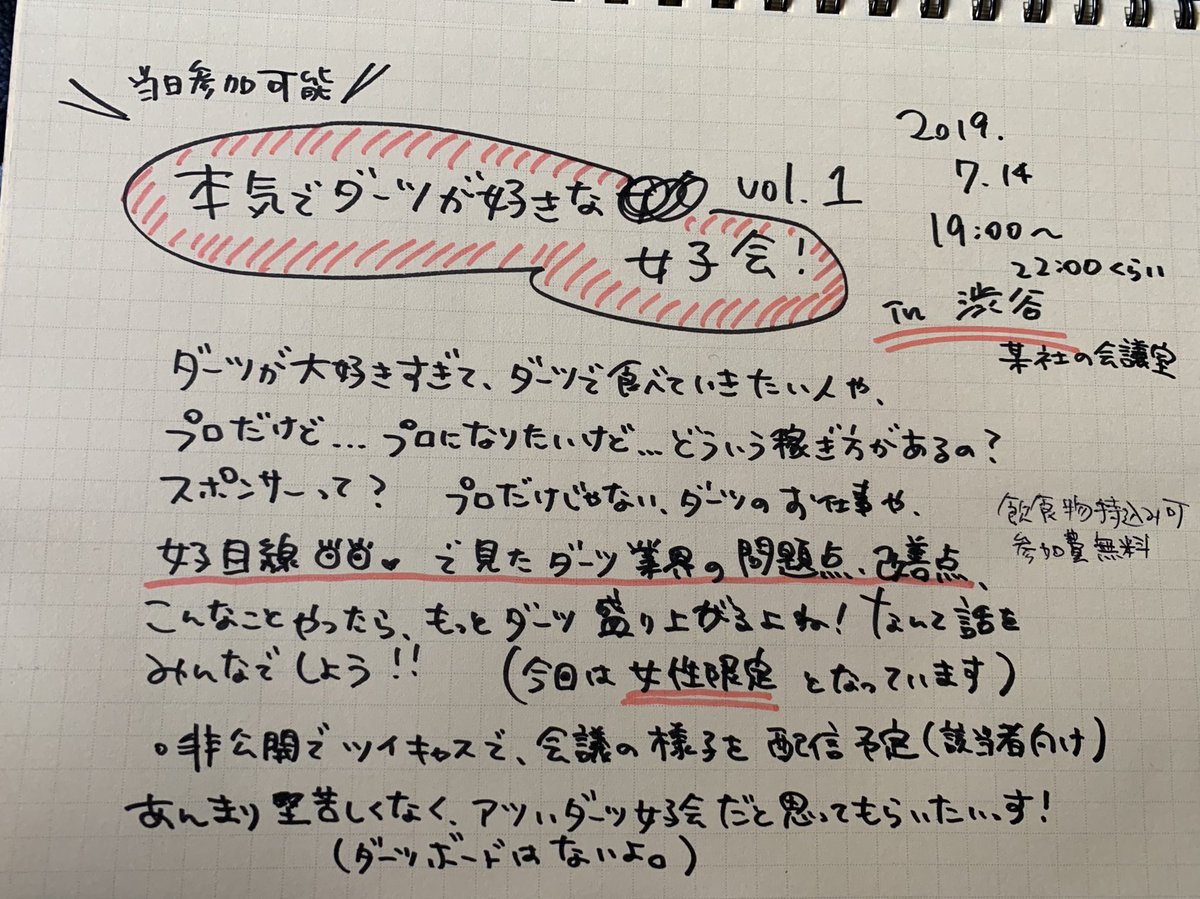 当日参加可能
本気でダーツが好きな
女子会!
vol.1
2019.
7.14
19:00〜
22:00くらい
in 渋谷
某社の会議室
ダーツが大好きすぎて、ダーツで食べていきたい人や、
プロだけど... プロになりたいけど... どういう稼ぎ方があるの?
スポンサーって? プロだけじゃない、ダーツのお仕事や、
飲食物持込み可
参加費無料
女子目線 で見たダーツ業界の問題点、改善点、
こんなことやったら、もっとダーツ盛り上がるよね! なんて話を
みんなでしよう!! (今回は女性限定となっています)
。非公開でツイキャスで、会議の様子を配信予定(該当者向け)
あんまり堅苦しくなく、アツいダーツ女子会だと思ってもらいたいっす!
(ダーツボードはないよ。)